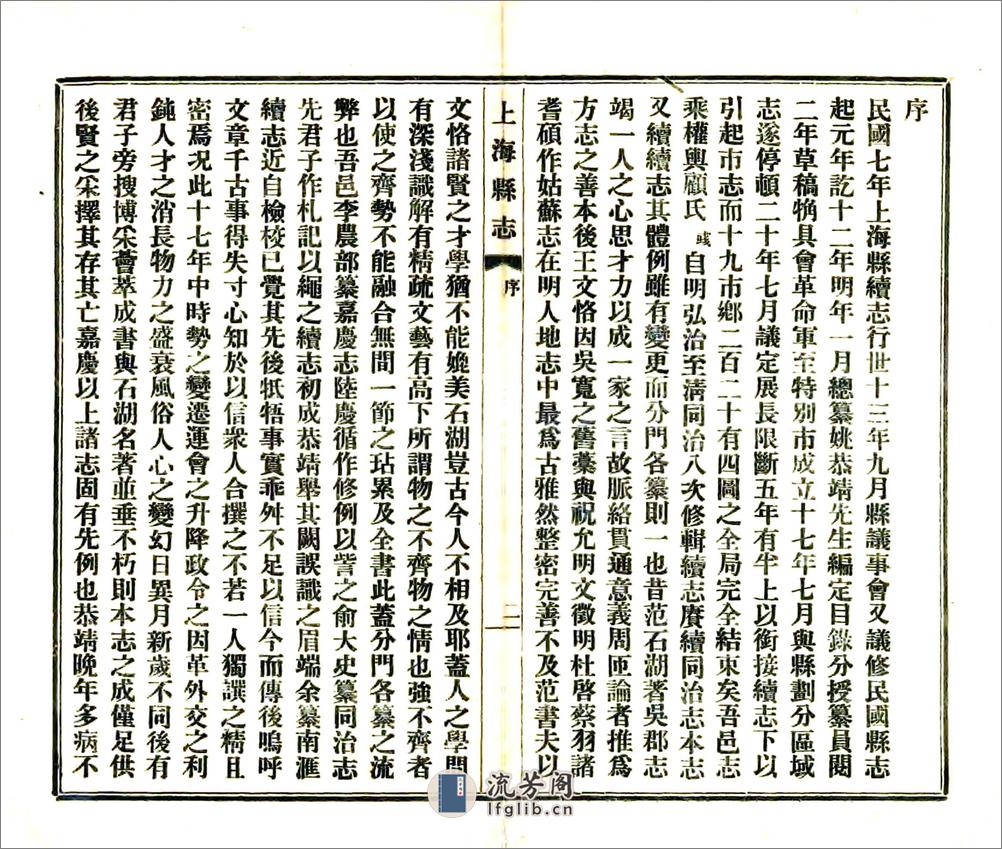 序
民國七年上海縣續志行世十三年九月縣議事會又議修民國縣志
起元年訖十二年明年一月總纂姚恭靖先生編定目錄分授纂員閱
二年草稿觕具會革命軍至特別市成立十七年七月與縣劃分區域
志遂停頓二十年七月議定展長限斷五年有半上以銜接續志下以
引起市志而十九市鄉二百二十有四圖之全局完全結束矣吾邑志
乘權輿顧氏彧自明弘治至清同治八次修輯續志賡續同治志本志
又續續志其體例雖有變更而分門各纂則一也昔范石湖著吳郡志
竭一人之心思才力以成一家之言故脈絡貫通意義周匝論者推爲
方志之善本後王文恪因吳寬之舊藁與祝允明文徵明杜啓蔡羽諸
耆碩作姑蘇志在明人地志中最爲古雅然整密完善不及范書夫以
上海縣志
序
二
文恪諸賢之才學猶不能媲美石湖豈古今人不相及耶蓋人之學問
有深淺識解有精疏文藝有高下所謂物之不齊物之情也強不齊者
以使之齊勢不能融合無間一節之玷累及全書此蓋分門各纂之流
弊也吾邑李農部纂嘉慶志陸慶循作修例以訾之俞大史纂同治志
先君子作札記以繩之續志初成恭靖舉其闕誤識之眉端余纂南滙
續志近自檢校已覺其先後牴牾事實乖舛不足以信今而傳後嗚呼
文章千古事得失寸心知於以信衆人合撰之不若一人獨譔之精且
密焉况此十七年中時勢之變遷運會之升降政令之因革外交之利
鈍人才之消長物力之盛衰風俗人心之變幻日異月新歲不同後有
君子旁搜博采薈萃成書與石湖名著並垂不朽則本志之成僅足供
後賢之采擇其存其亡嘉慶以上諸志固有先例也恭靖晚年多病不
流芳阁
lfglib.cn